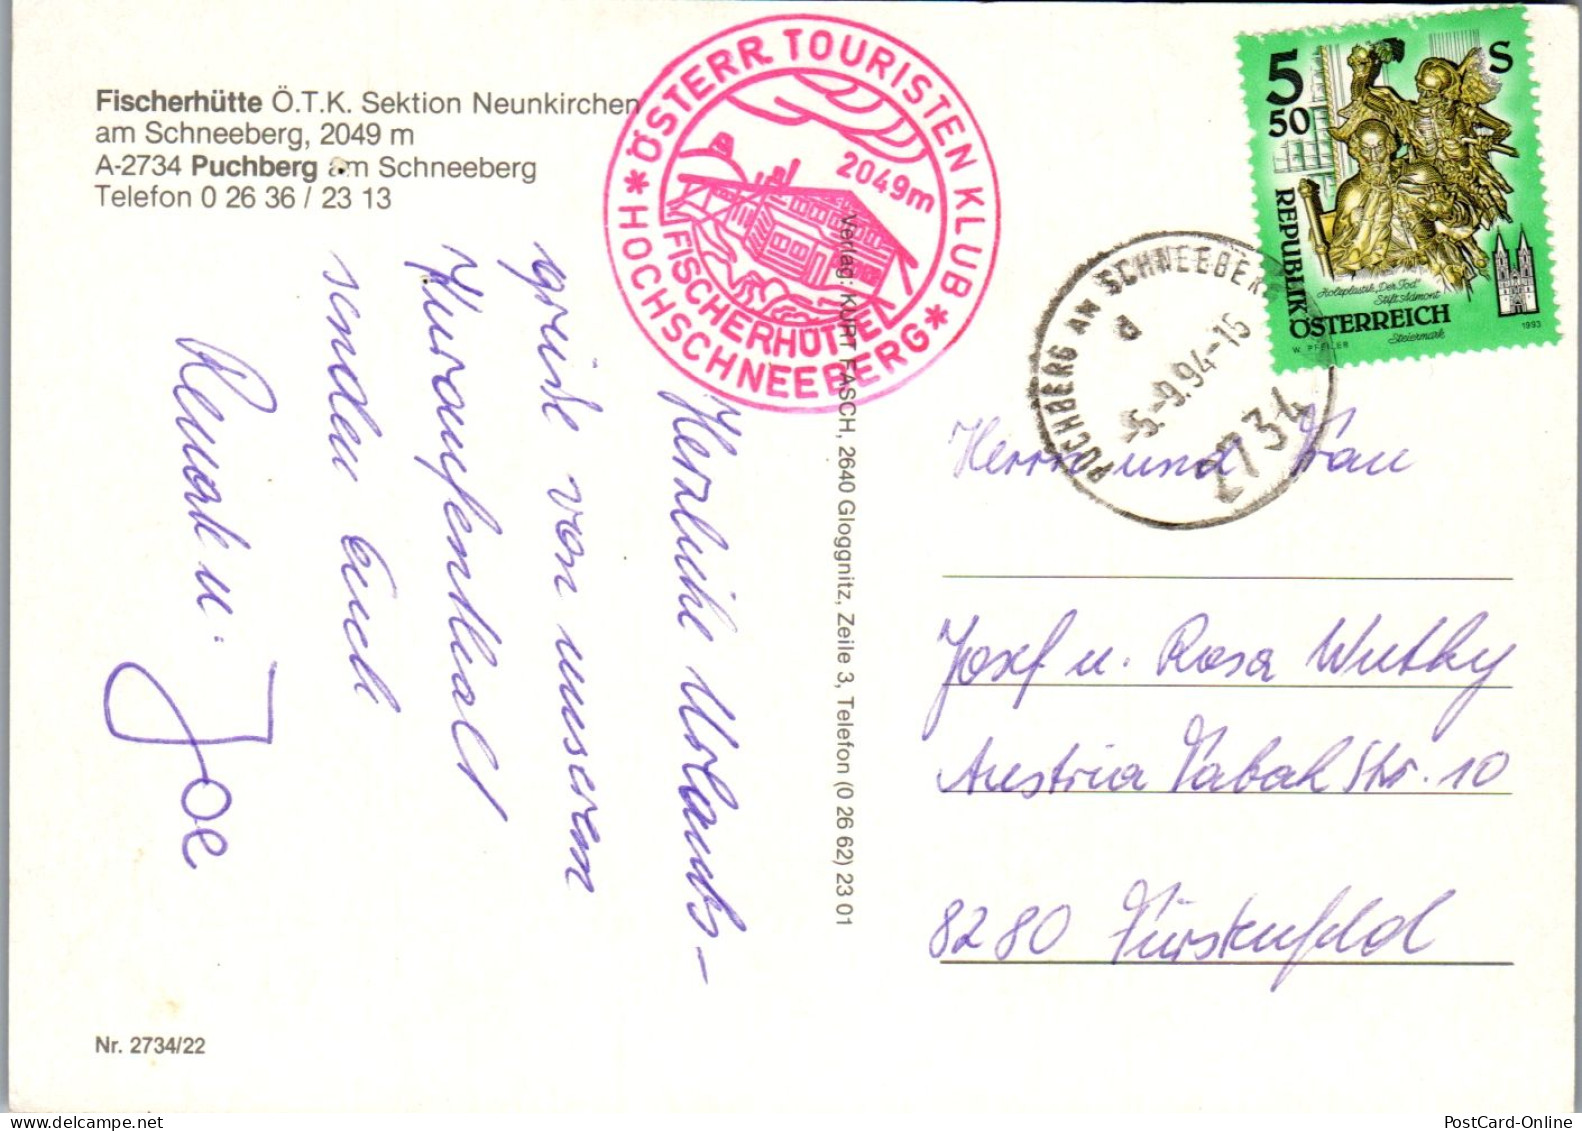 Fischerhütte Ö.T.K. Sektion Neunkirchen
am Schneeberg, 2049 m
A-2734 Puchberg am Schneeberg
Telefon 0 26 36 / 23 13
* ÖSTERR. TOURISTEN KLUB *
2049m
FISCHERHÜTTE
HOCHSCHNEEBERG
5 S
50
REPUBLIK
Holzplastik „Der Tod"
Stift Admont
ÖSTERREICH
Steiermark
W. PFEILER
1993
PUCHBERG AM SCHNEEBERG
d
-5.-9.94-15
2734
Herzliche Urlaubs-
grüße von unserem
Kuraufenthalt
senden Euch
Renate u.
Joe
Verlag: KURT FASCH, 2640 Gloggnitz, Zeile 3, Telefon (0 26 62) 23 01
Herrn und Frau
Josef u. Rosa Wutky
Austria Tabak Str. 10
8280 Fürstenfeld
Nr. 2734/22
PostCard-Online